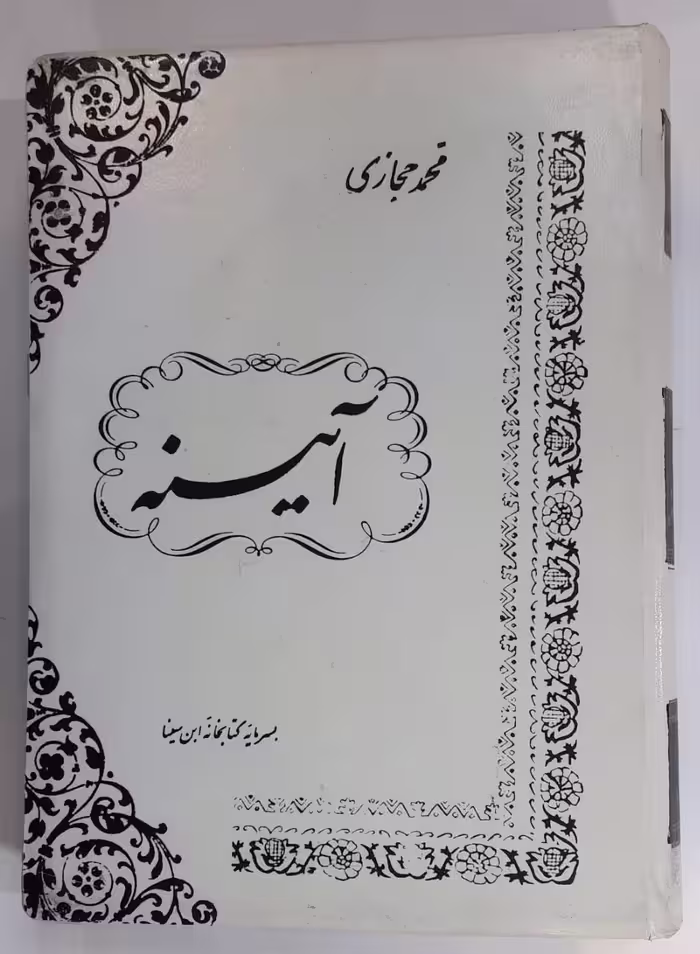 محمد حجازی
آئینه
بسرمایهٔ کتابخانهٔ ابن سینا